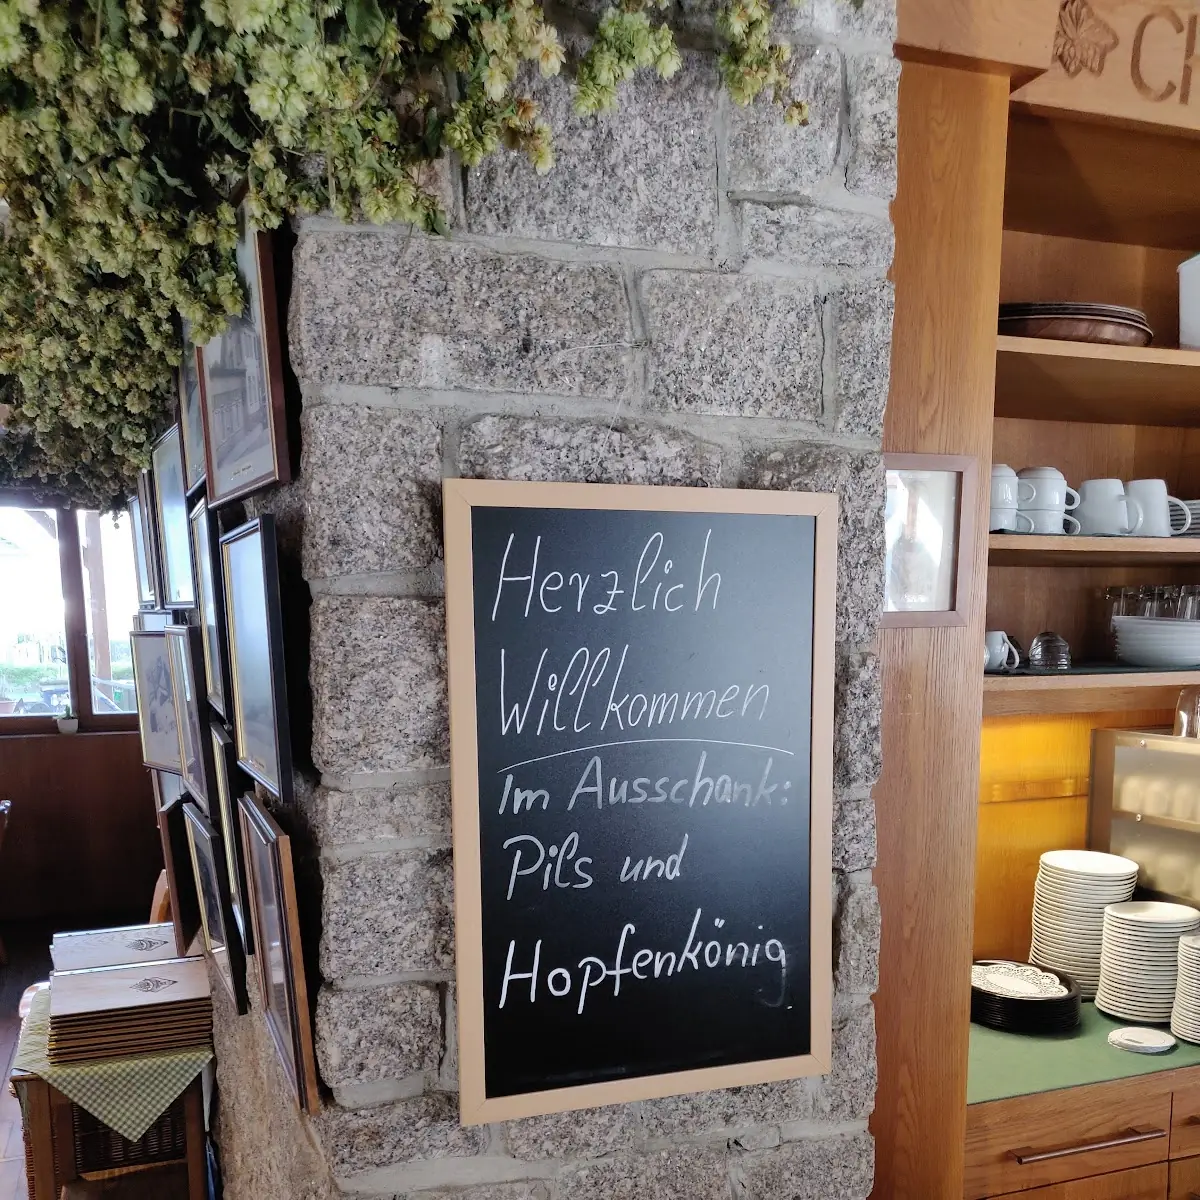 Herzlich
Willkommen
Im Ausschank:
Pils und
Hopfenkönig